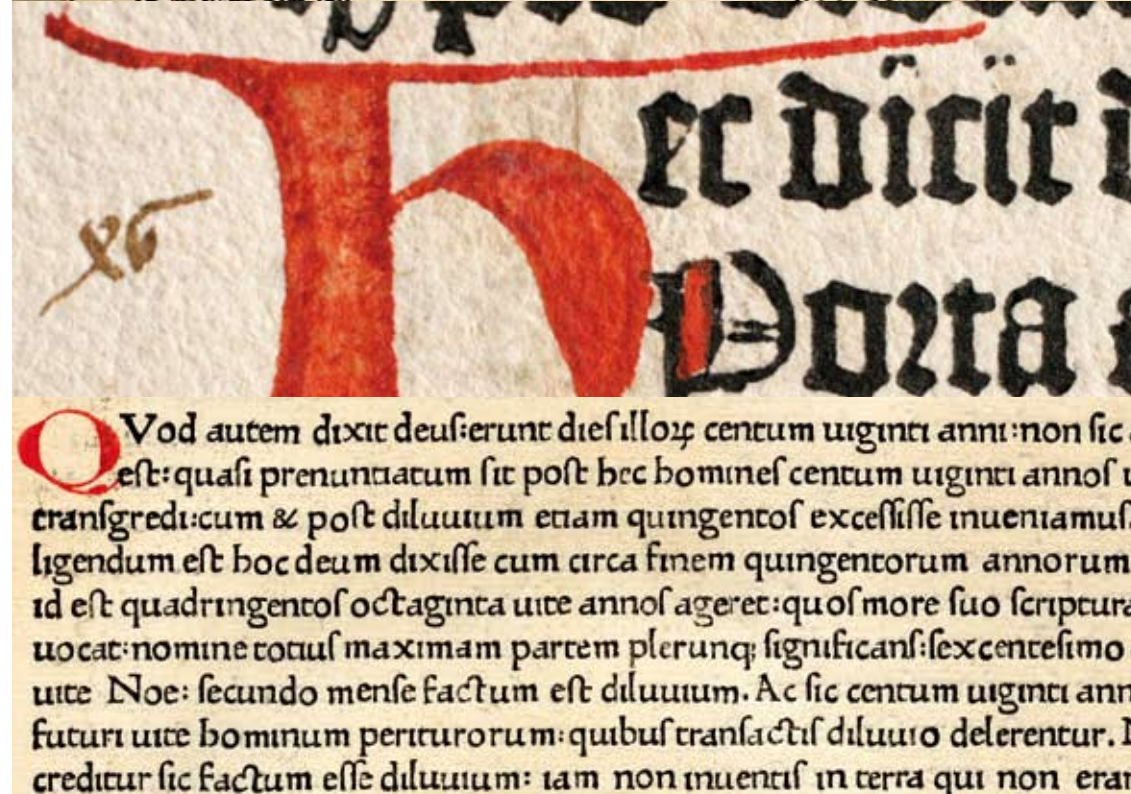 Hec dicit
Porta
QVod autem dixit deuſ:erunt dieſ illoꝝ centum uiginti anni:non ſic
eſt:quaſi prenuntiatum ſit poſt hec homineſ centum uiginti annoſ
tranſgredi:cum & poſt diluuium etiam quingentoſ exceſſiſſe inueniamuſ.
ligendum eſt hoc deum dixiſſe cum circa finem quingentorum annorum
id eſt quadringentoſ octaginta uite annoſ ageret:quoſ more ſuo ſcriptura
uocat:nomine totiuſ maximam partem plerunqꝫ ſignificanſ:ſexcenteſimo
uite Noe: ſecundo menſe factum eſt diluuium. Ac ſic centum uiginti ann
futuri uite hominum periturorum:quibuſ tranſactiſ diluuio delerentur.
creditur ſic factum eſſe diluuium: iam non inuentiſ in terra qui non eran